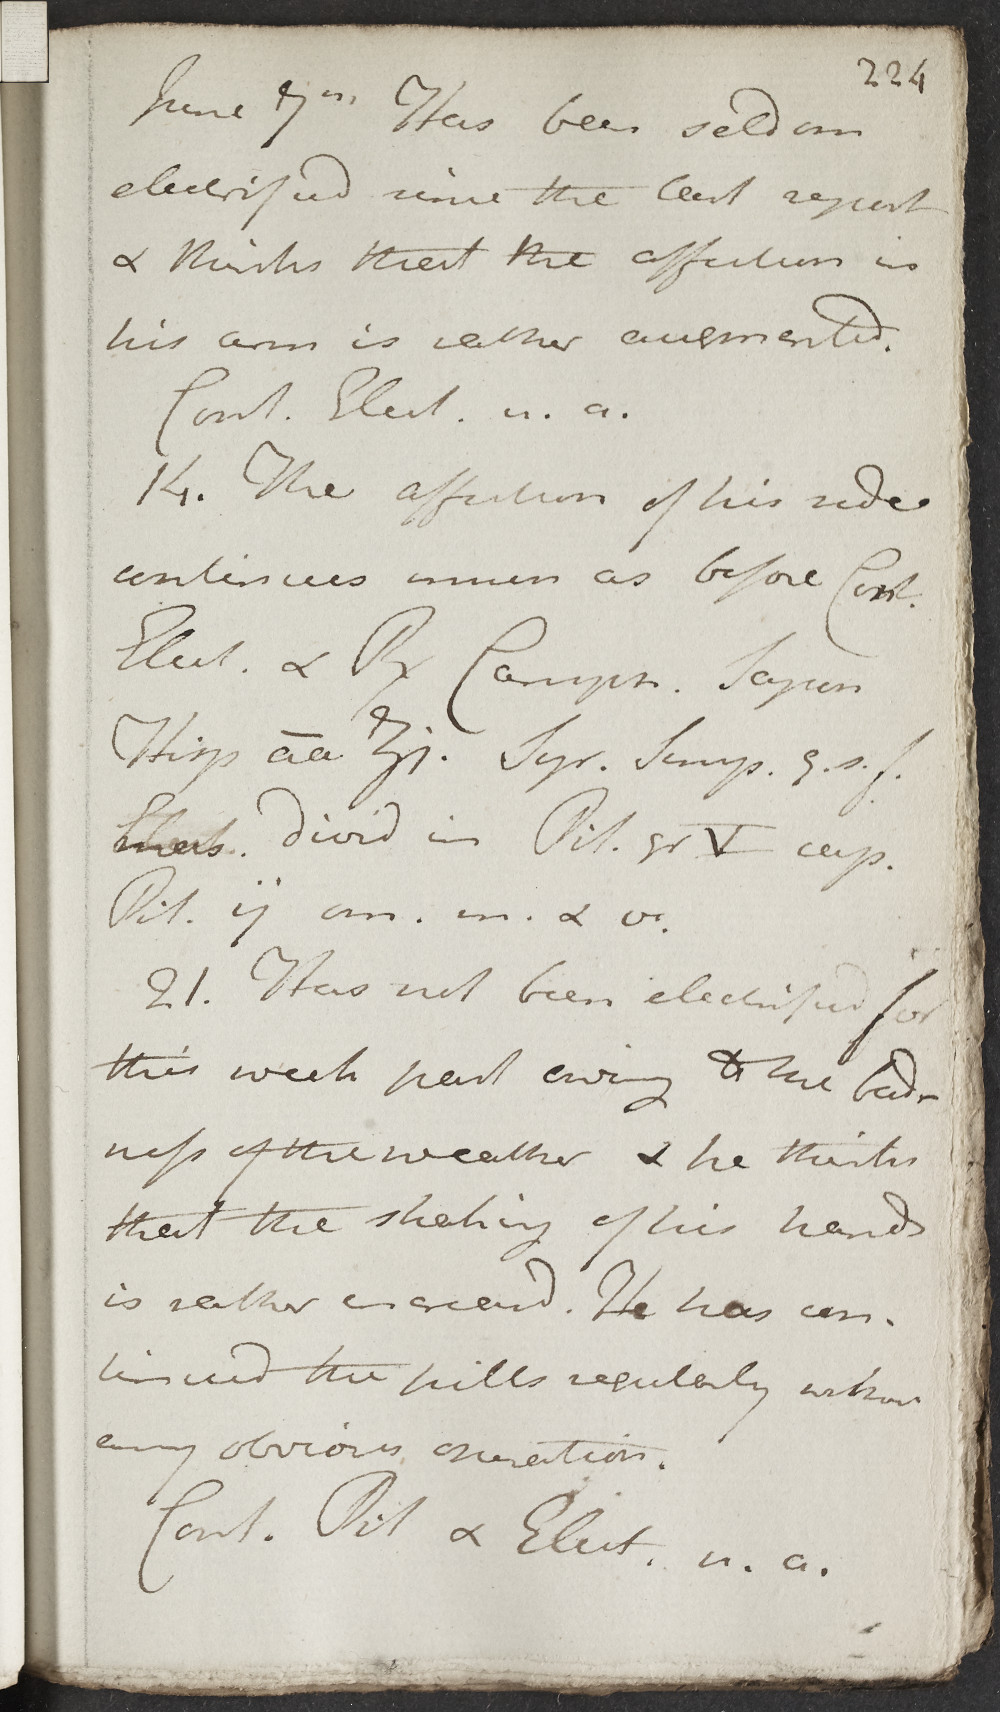 224
June 7th Has been seldom
electrified since the last report
& thinks that the affection in
his arm is rather augmented.
Cont. Elect. u. a.
14. The affection of his side
continues much as before Cont.
Elect. & ℞ Camph. Sapon
Hisp āā ʒj. Syr. Simp. q.s. f.
Elect. divid in Pil. gr V cap.
Pil. ij om. m. & v.
21. Has not been electrified for
this week past owing to the bad-
ness of the weather & he thinks
that the shaking of his hands
is rather increasd. He has con-
tinued the pills regularly without
any obvious operation.
Cont. Pil & Elect. u. a.